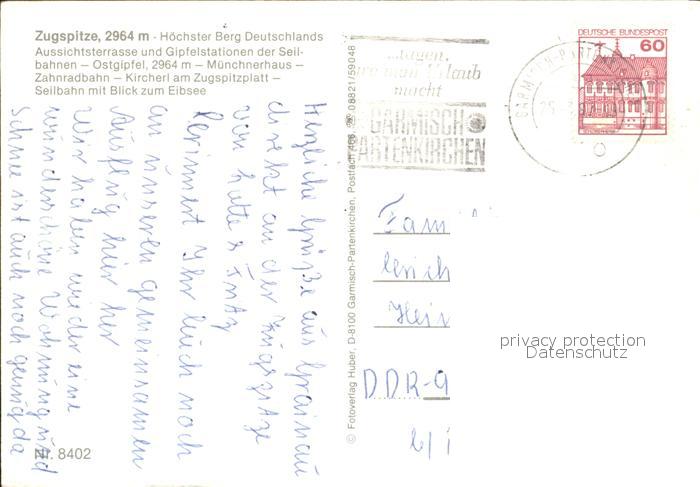 Zugspitze, 2964 m - Höchster Berg Deutschlands
Aussichtsterrasse und Gipfelstationen der Seil-
bahnen – Ostgipfel, 2964 m – Münchnerhaus –
Zahnradbahn – Kircherl am Zugspitzplatt –
Seilbahn mit Blick zum Eibsee
Herzliche Grüße aus Grainau
direkt an der Zugspitze
von Lotte & Fritz
Erinnert Ihr Euch noch
an unseren gemeinsamen
Ausflug hier her
Wir haben wieder eine
wunderschöne Wohnung und
Schnee ist auch noch genug da
Nr. 8402
© Fotoverlag Huber, D-8100 Garmisch-Partenkirchen, Postfach 466, ☎ 08821/59048
...tagen,
wo man Urlaub
macht
GARMISCH
PARTENKIRCHEN
GARMISCH-PARTENKI
DEUTSCHE BUNDESPOST
60
Fam
Hein
DDR-9
privacy protection
Datenschutz